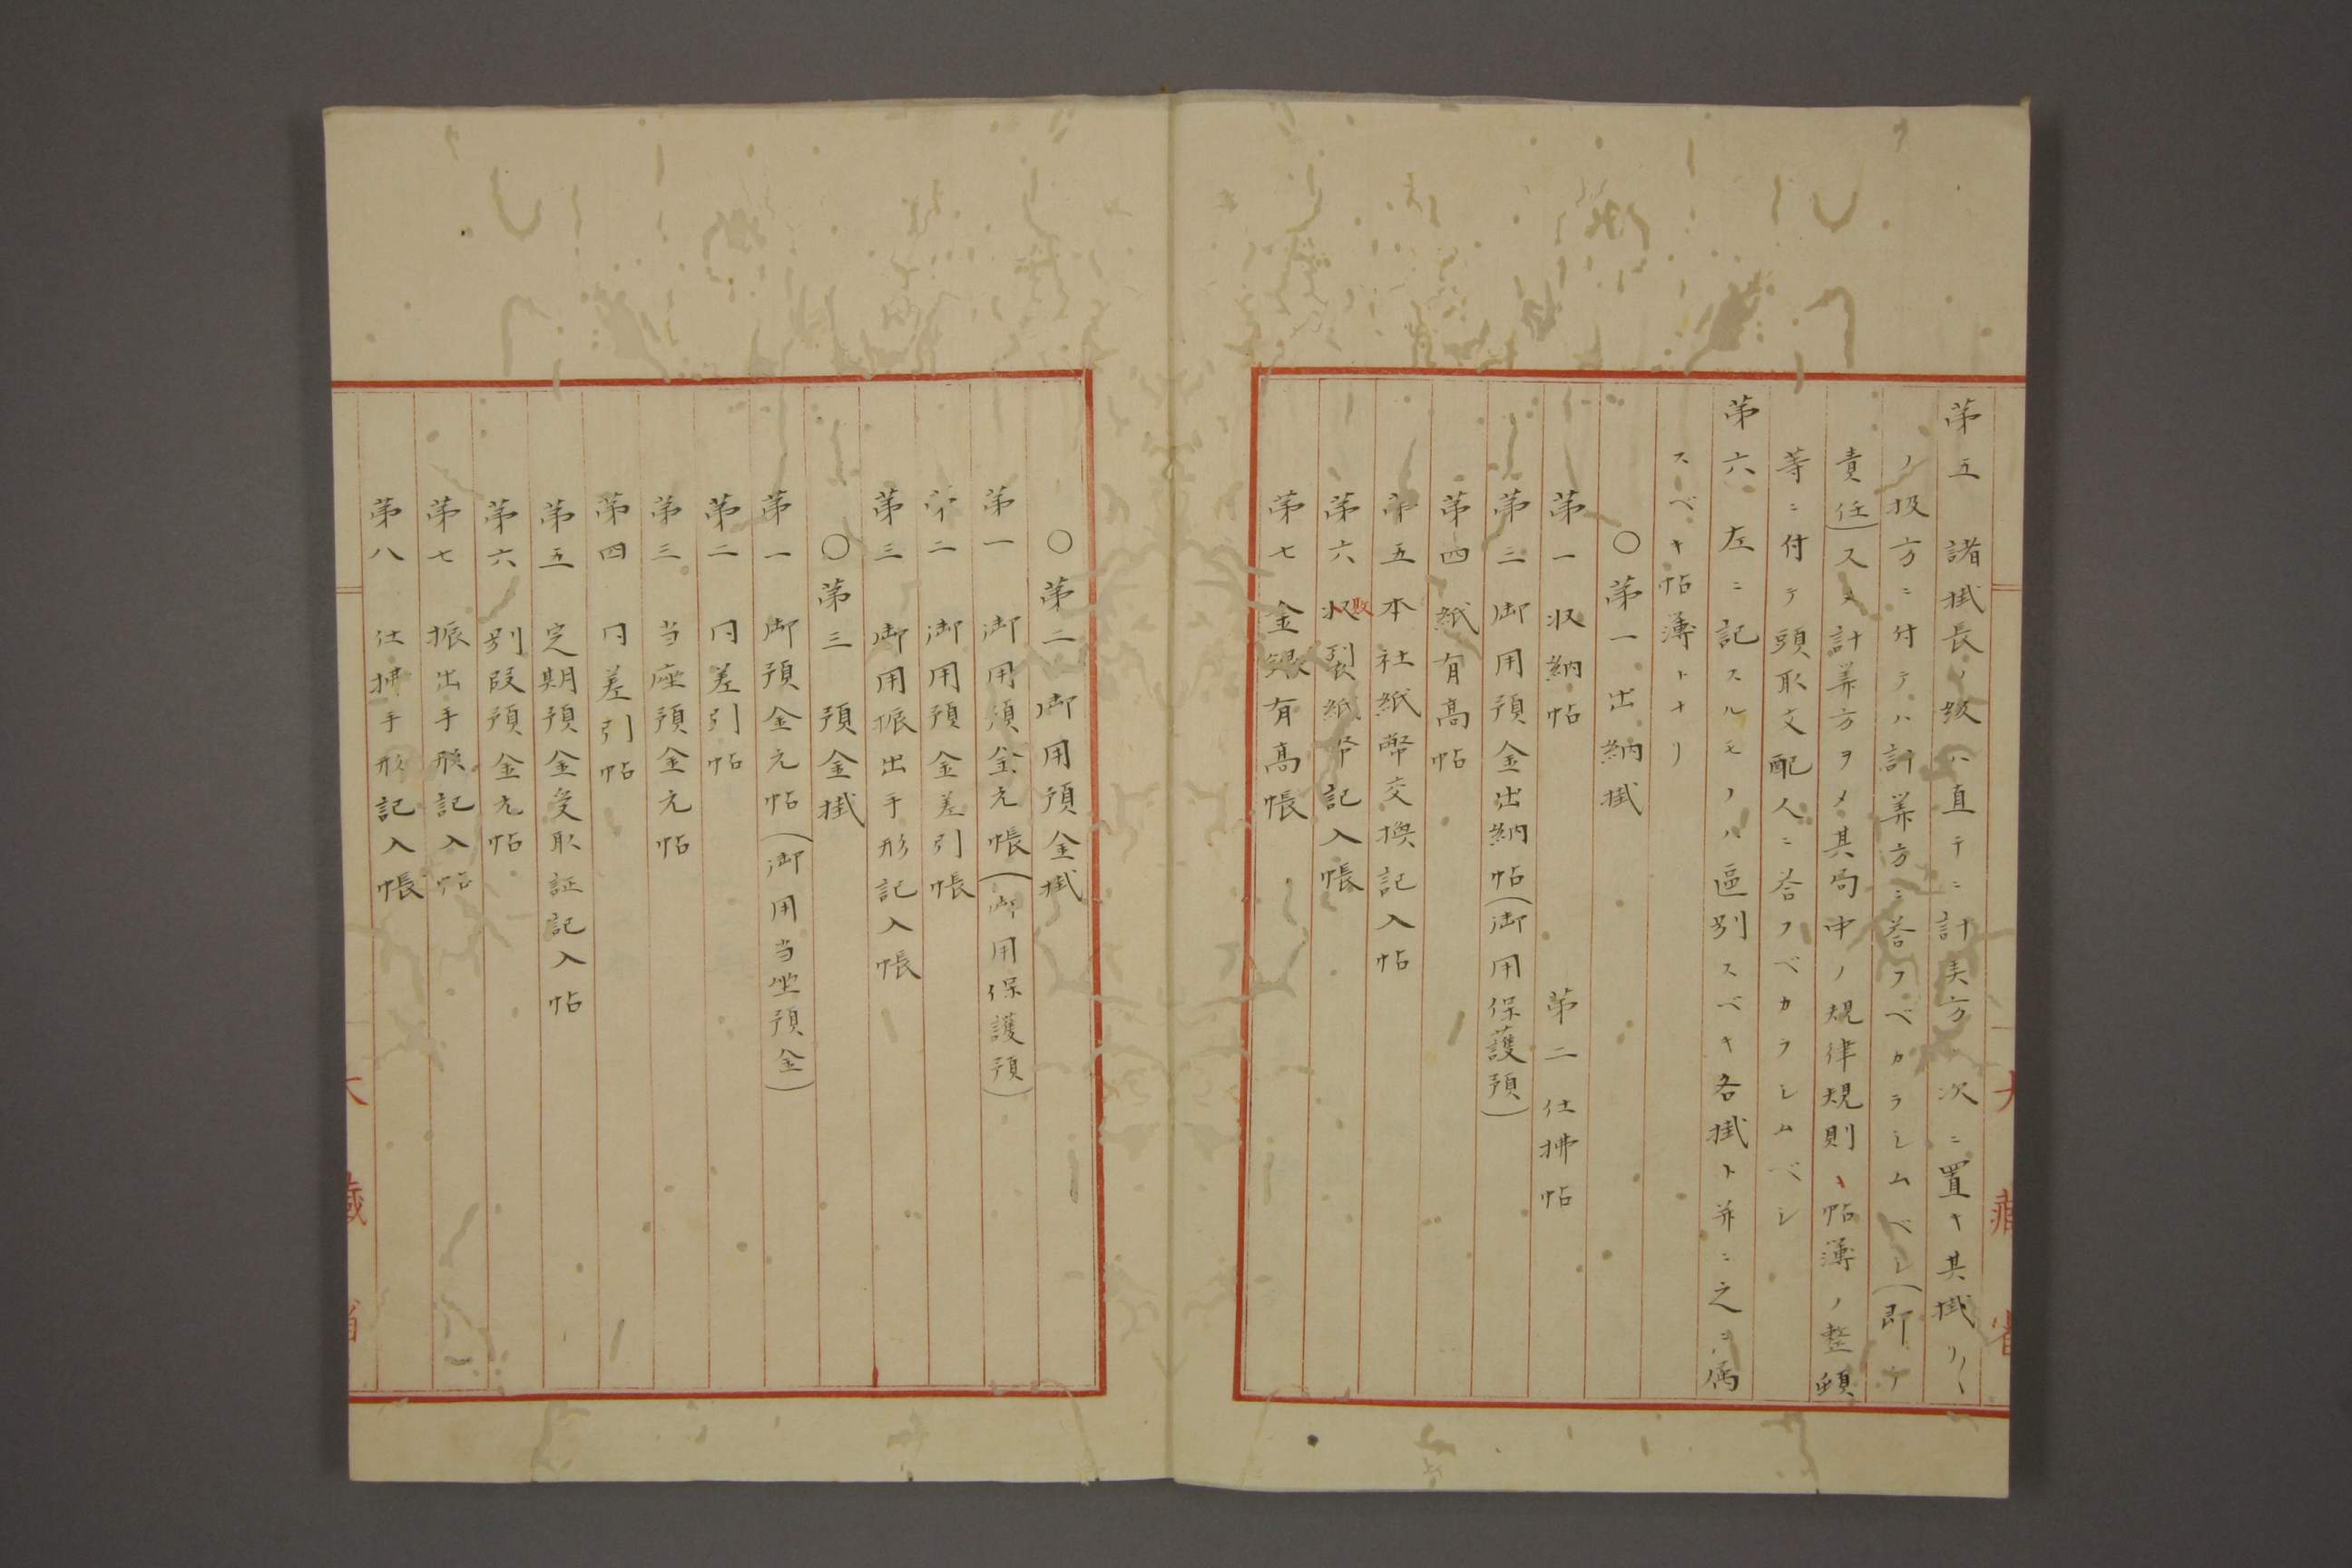 第五 諸掛長ノ級ハ直チニ計美方ノ次ニ置キ其掛リ〱
ノ扱方ニ付テハ計筭方ニ答フベカラシムベシ(即チ
責任)スノ計筭方ヲメ其局中ノ規律規則、帖簿ノ整頓
等ニ付テ頭取支配人ニ答フベカラシムベシ
第六 左ニ記スルモノハ區別スベキ各掛ト并ニ之ニ属
スベキ帖薄トナリ
〇第一 出納掛
第一 収納帖 第二 仕拂帖
第三 御用預金出納帖(御用保護預)
第四 紙有高帖
第五 本社紙幣交換記入帖
第六 収敗裂紙幣記入帳
第七 金銀有高帳
大藏省
〇第二 御用預金掛
第一 御用預金元帳(御用保護預)
第二 御用預金差引帳
第三 御用振出手形記入帳
〇第三 預金掛
第一 御預金元帖(御用当坐預金)
第二 同差引帖
第三 当座預金元帖
第四 同差引帖
第五 定期預金受取証記入帖
第六 別段預金元帖
第七 振出手形記入帖
第八 仕拂手形記入帳
大藏省